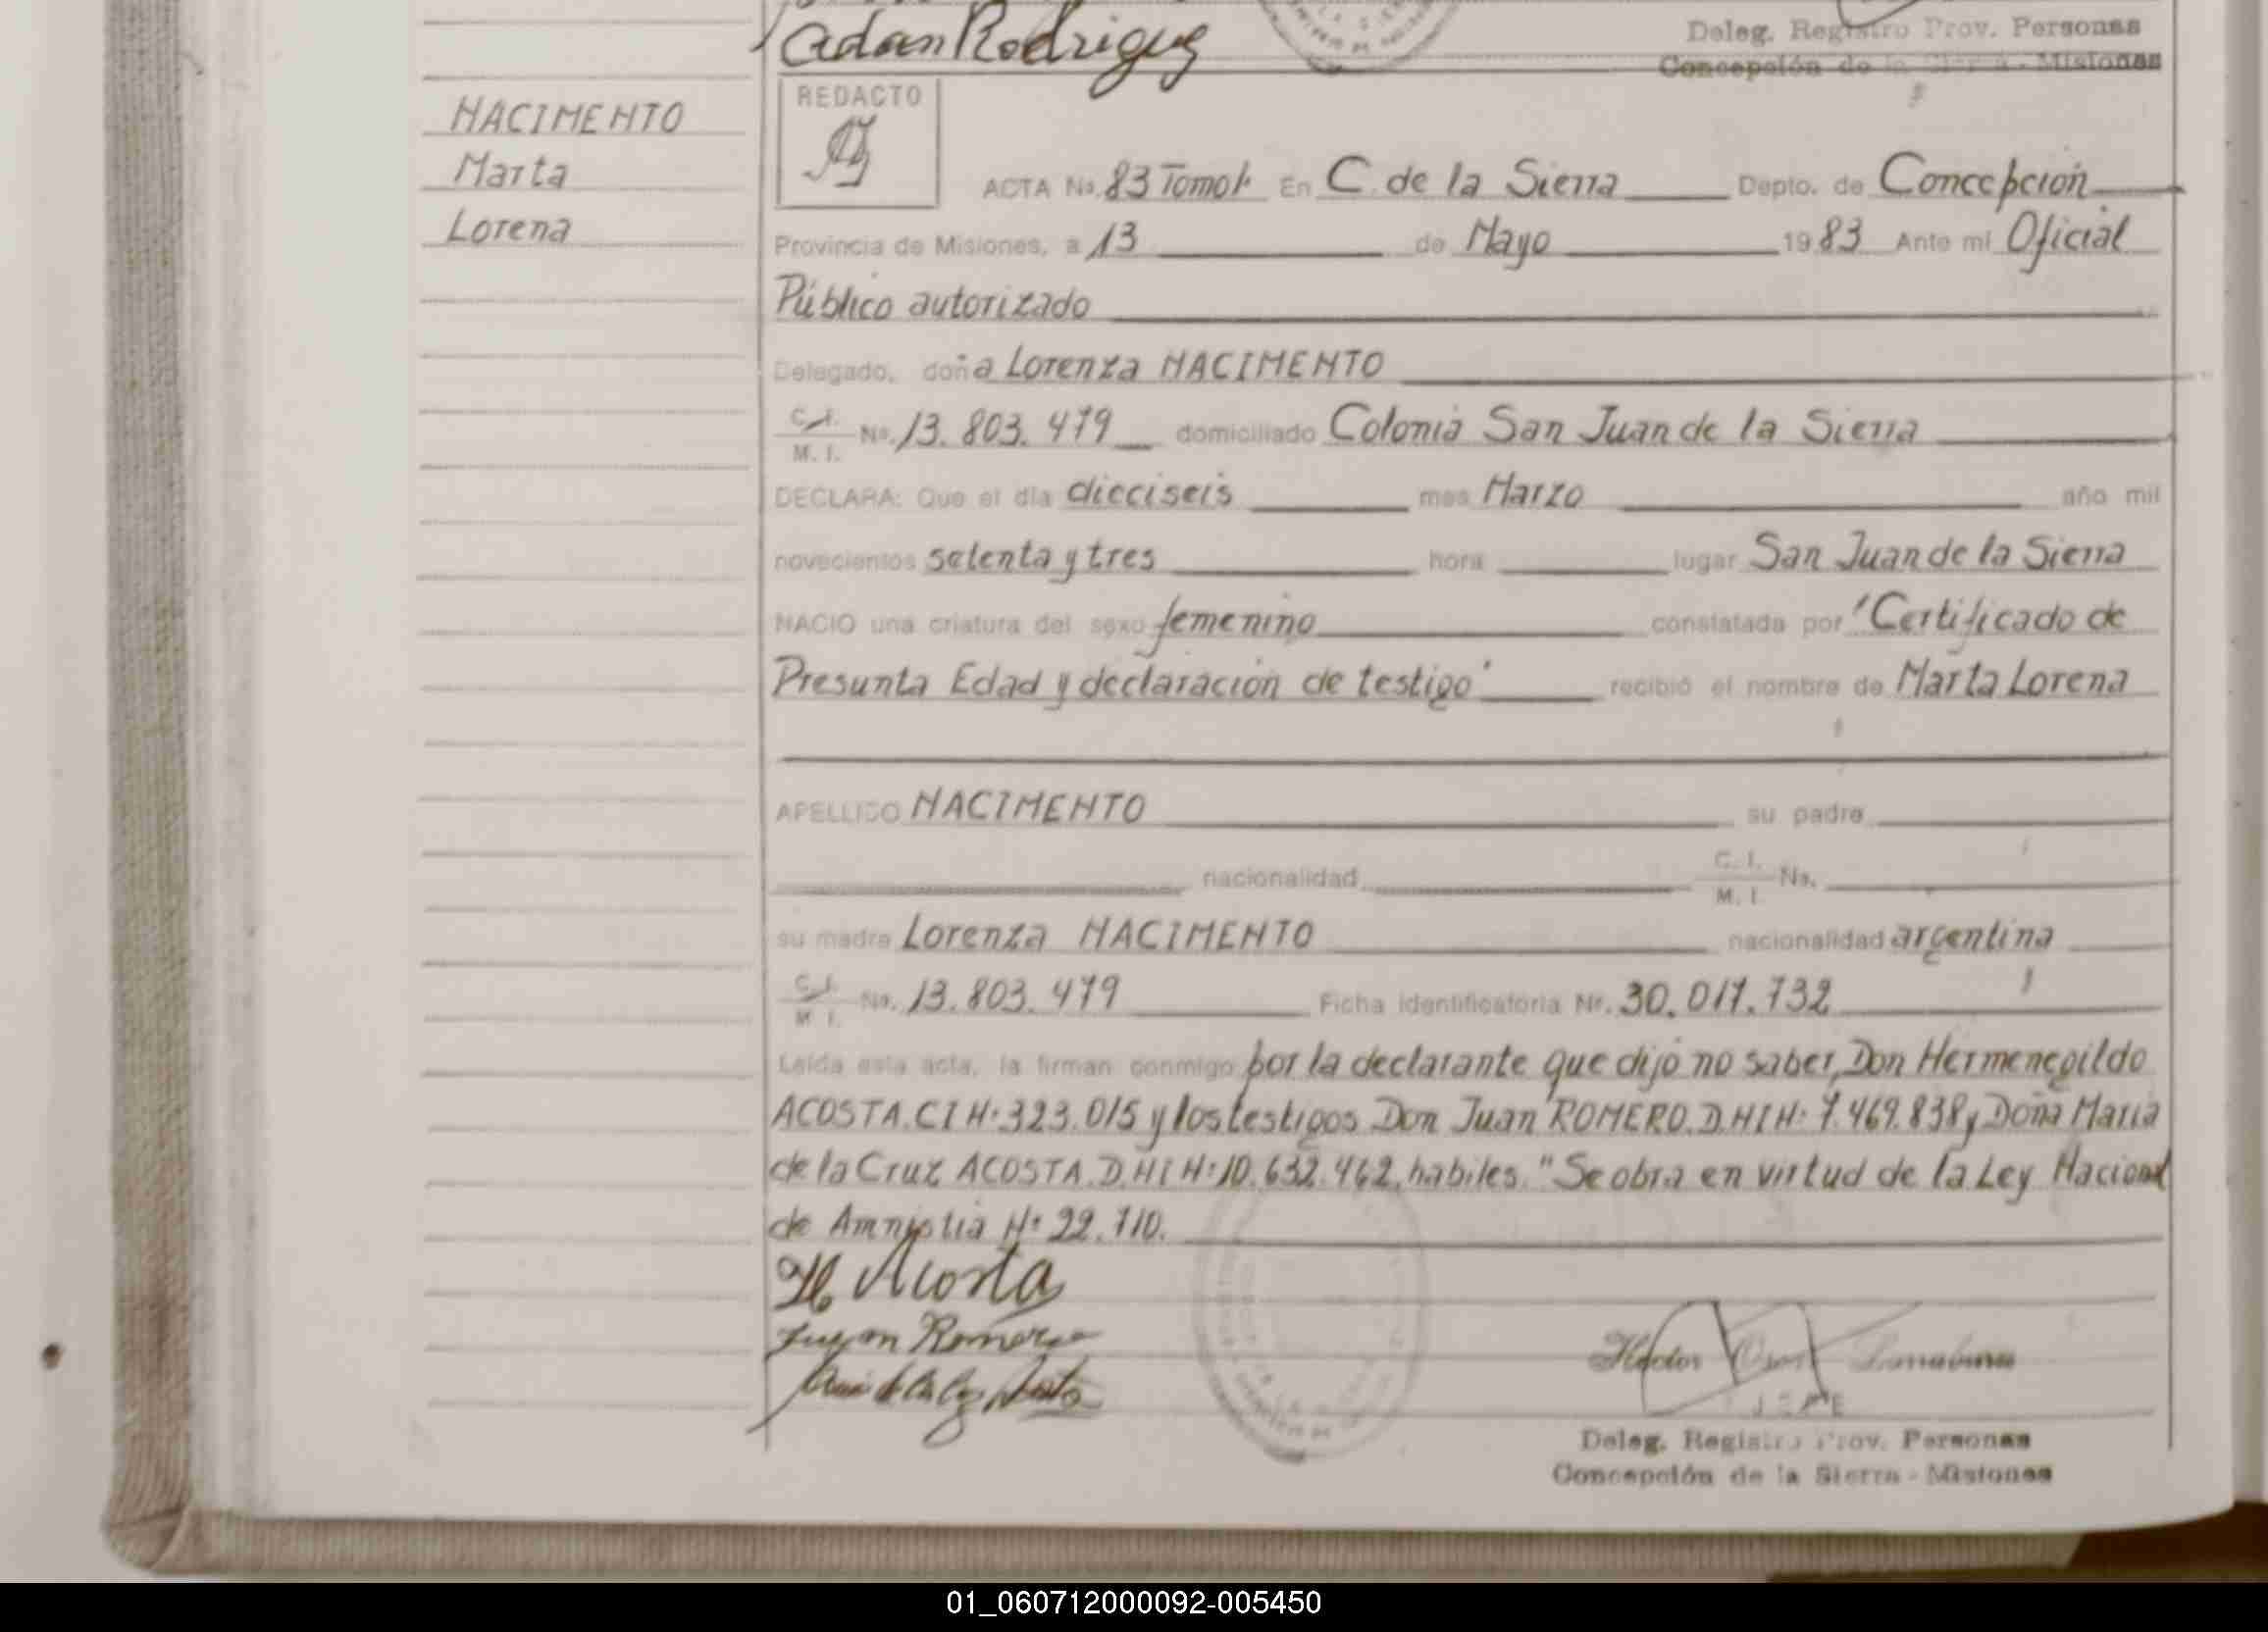 Adan Rodriguez
Deleg. Registro Prov. Personas
Concepción de la Sierra - Misiones
NACIMENTO
Marta
Lorena
REDACTO
ACTA No. 83 Tomo 1º En C. de la Sierra Depto. de Concepción
Provincia de Misiones, a 13 de Mayo 1983 Ante mi Oficial
Público autorizado
Delegado, doña Lorenza NACIMENTO
C.I. M.I. No. 13.803.479 domiciliado Colonia San Juan de la Sierra
DECLARA: Que el día dieciseis mes Marzo año mil
novecientos setenta y tres hora lugar San Juan de la Sierra
NACIO una criatura del sexo femenino constatada por "Certificado de
Presunta Edad y declaración de testigo" recibió el nombre de Marta Lorena
APELLIDO NACIMENTO su padre
nacionalidad C.I. M.I. No.
su madre Lorenza NACIMENTO nacionalidad argentina
C.I. M.I. No. 13.803.479 Ficha identificatoria Nr. 30.017.732
Leída esta acta, la firman conmigo por la declarante que dijo no saber, Don Hermenegildo
ACOSTA. C I Nº 323.015 y los testigos Don Juan ROMERO. D.N I Nº 7.469.838 y Doña María
de la Cruz ACOSTA. D.N I Nº 10.632.462, habiles. "Se obra en virtud de la Ley Nacional
de Amnistia Nº 22.710.
H Acosta
Juan Romero
Hector
JEFE
Deleg. Registro Prov. Personas
Concepción de la Sierra - Misiones
01_060712000092-005450